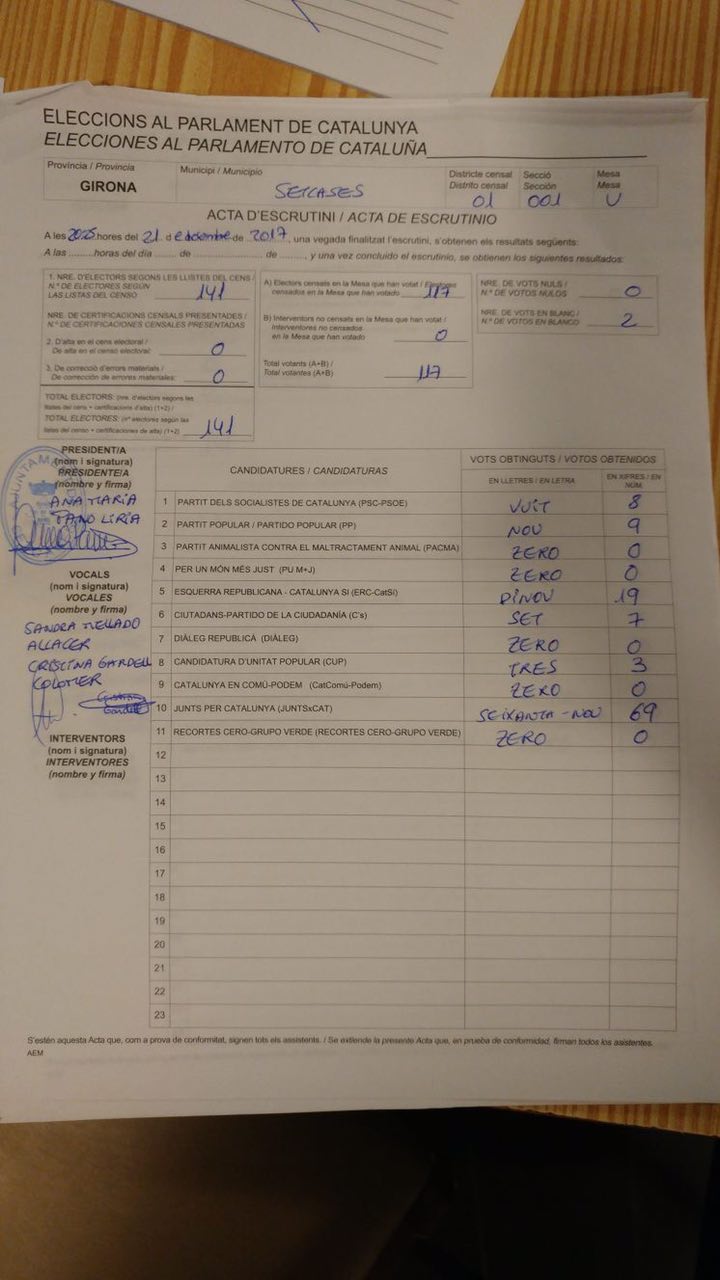 ELECCIONS AL PARLAMENT DE CATALUNYA
ELECCIONES AL PARLAMENTO DE CATALUÑA
Província / Provincia
GIRONA
Municipi / Municipio
SETCASES
Districte censal
Distrito censal
01
Secció
Sección
001
Mesa
Mesa
U
ACTA D'ESCRUTINI / ACTA DE ESCRUTINIO
A les 20:25 hores del 21 d e desembre de 2017, una vegada finalitzat l'escrutini, s'obtenen els resultats següents:
A las ........ horas del día ...... de .............. de ........, y una vez concluido el escrutinio, se obtienen los siguientes resultados:
1. NRE. D'ELECTORS SEGONS LES LLISTES DEL CENS /
N.º DE ELECTORES SEGÚN
LAS LISTAS DEL CENSO 141
NRE. DE CERTIFICACIONS CENSALS PRESENTADES /
N.º DE CERTIFICACIONES CENSALES PRESENTADAS
2. D'alta en el cens electoral /
De alta en el censo electoral: 0
3. De correcció d'errors materials /
De corrección de errores materiales: 0
TOTAL ELECTORS: (nre. d'electors segons les
llistes del cens + certificacions d'alta) (1+2) /
TOTAL ELECTORES: (nº electores según las
listas del censo + certificaciones de alta) (1+2) 141
A) Electors censats en la Mesa que han votat / Electores
censados en la Mesa que han votado 117
B) Interventors no censats en la Mesa que han votat /
Interventores no censados
en la Mesa que han votado 0
Total votants (A+B) /
Total votantes (A+B) 117
NRE. DE VOTS NULS /
N.º DE VOTOS NULOS 0
NRE. DE VOTS EN BLANC /
N.º DE VOTOS EN BLANCO 2
PRESIDENT/A
(nom i signatura)
PRESIDENTE/A
(nombre y firma)
AJUNTAM
ANA MARIA
PANO LIRIA
VOCALS
(nom i signatura)
VOCALES
(nombre y firma)
SANDRA MELLADO
ALLACER
CRISTINA GARDELL
COLOMER
INTERVENTORS
(nom i signatura)
INTERVENTORES
(nombre y firma)
CANDIDATURES / CANDIDATURAS
VOTS OBTINGUTS / VOTOS OBTENIDOS
EN LLETRES / EN LETRA
EN XIFRES / EN
NÚM.
1 PARTIT DELS SOCIALISTES DE CATALUNYA (PSC-PSOE) VUIT 8
2 PARTIT POPULAR / PARTIDO POPULAR (PP) NOU 9
3 PARTIT ANIMALISTA CONTRA EL MALTRACTAMENT ANIMAL (PACMA) ZERO 0
4 PER UN MÓN MÉS JUST (PU M+J) ZERO 0
5 ESQUERRA REPUBLICANA - CATALUNYA SI (ERC-CatSí) DINOU 19
6 CIUTADANS-PARTIDO DE LA CIUDADANÍA (C's) SET 7
7 DIÀLEG REPUBLICÀ (DIÀLEG) ZERO 0
8 CANDIDATURA D'UNITAT POPULAR (CUP) TRES 3
9 CATALUNYA EN COMÚ-PODEM (CatComú-Podem) ZERO 0
10 JUNTS PER CATALUNYA (JUNTSxCAT) SEIXANTA-NOU 69
11 RECORTES CERO-GRUPO VERDE (RECORTES CERO-GRUPO VERDE) ZERO 0
12
13
14
15
16
17
18
19
20
21
22
23
S'estén aquesta Acta que, com a prova de conformitat, signen tots els assistents. / Se extiende la presente Acta que, en prueba de conformidad, firman todos los asistentes.
AEM